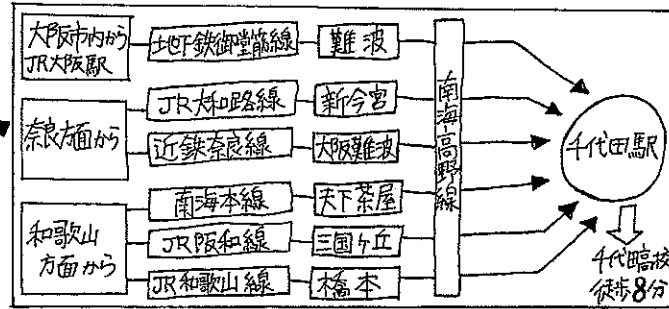 大阪市内から
JR大阪駅
地下鉄御堂筋線
難波
奈良方面から
JR大和路線
新今宮
近鉄奈良線
大阪難波
和歌山
方面から
南海本線
天下茶屋
JR阪和線
三国ヶ丘
JR和歌山線
橋本
南海高野線
千代田駅
千代田高校
徒歩8分